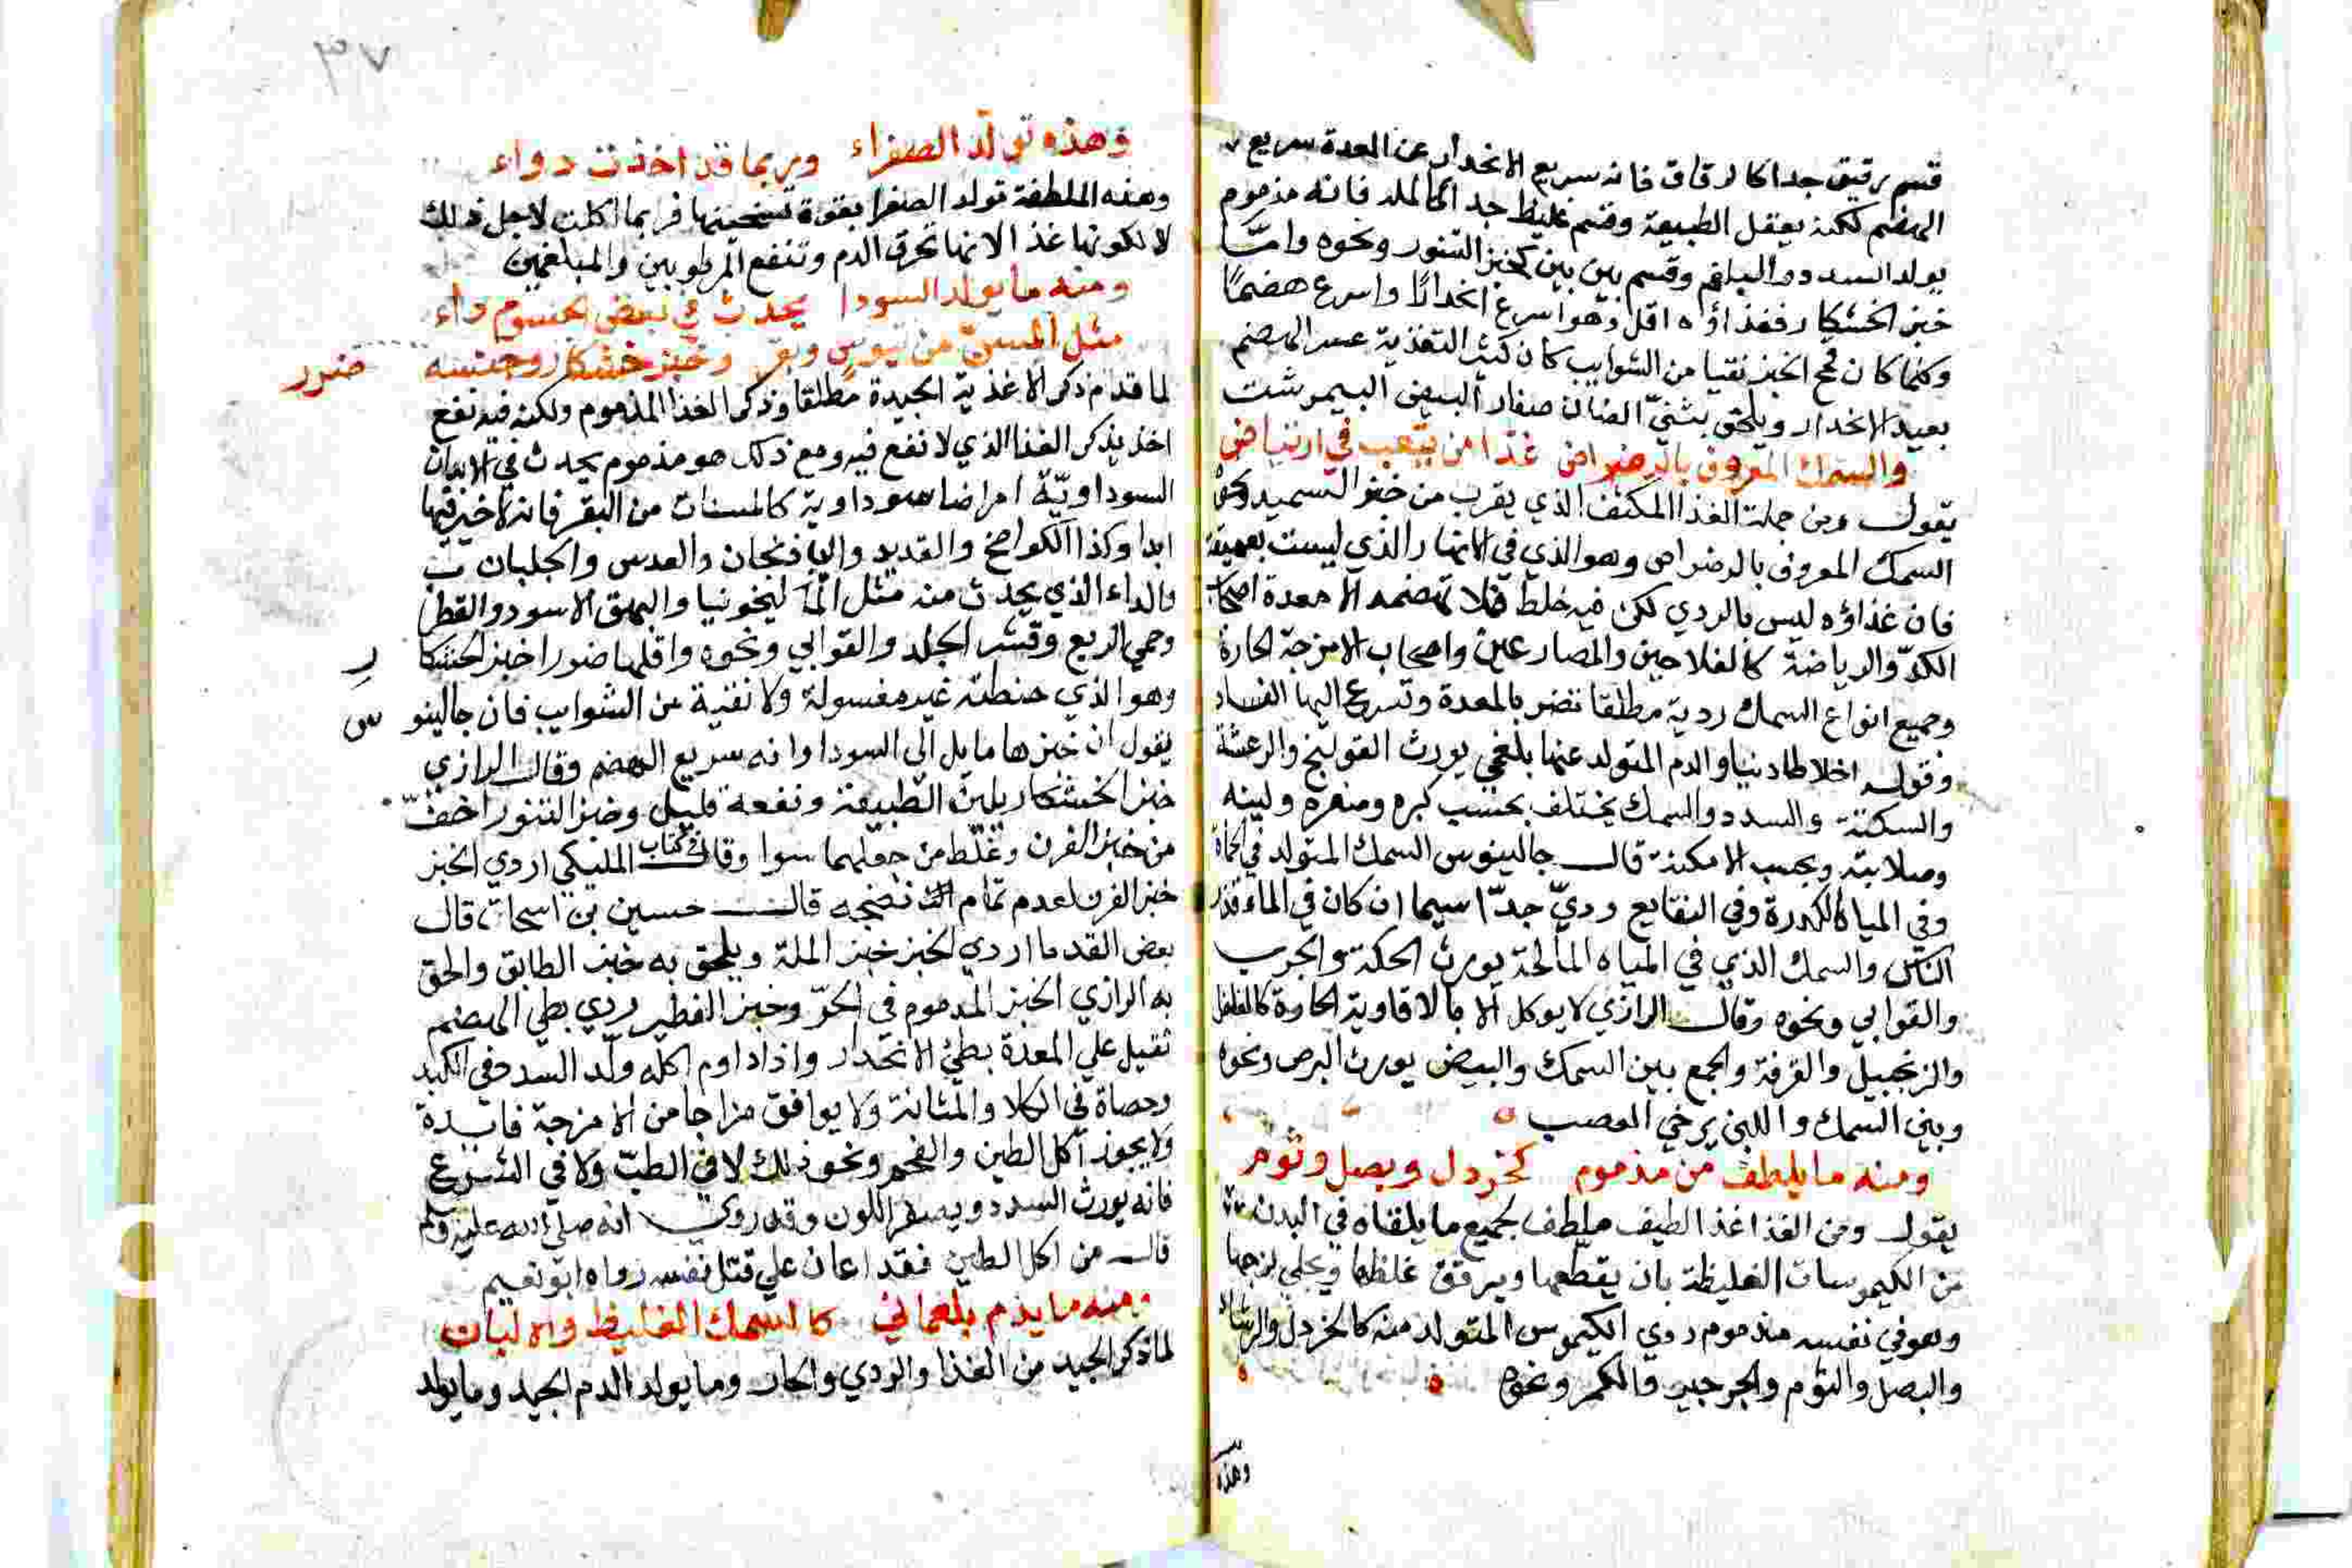 قسم رقيق جدا كالرقاق فانه سريع الانحدار عن المعدة سريع
الهضم لكنه يعقل الطبيعة وقسم غليظ جدا كالمله فانه مذموم
يولد السدد والبلغم وقسم بين بين كخبز التنور ونحوه وامّا
خبز الخشكار فغذاؤه اقل وهو اسرع انحدارًا واسرع هضمًا
وكلما كان قمح الخبز نقيا من الشوايب كان كثير التغذية عسر الهضم
بعيد الانحدار ويلحق بثنيّ الضان صفار البيض البيمرشت
والسمك المعروف بالرضراض غذا من يتعب في ارتياض
يقول ومن جملة الغذا المكثف الذي يقرب من خبز السميد ونحوه
السمك المعروف بالرضراض وهو الذي في الانهار الذي ليست بعميقة
فان غذاؤه ليس بالردي لكن فيه غلظ فلا تهضمه الا معدة اصحاب
الكدّ والرياضة كالفلاحين والمصارعين واصحاب الامزجة الحارة
وجميع انواع السمك ردية مطلقا تضر بالمعدة وتسرع اليها الفساد
والدم المتولد عنها بلغمي يورث القولنج والرعشة
والسكتة والسدد والسمك يختلف بحسب كبره وصغره ولينه
وصلابته وبحسب الامكنة قال جالينوس السمك المتولد في الحماة
وفي المياه الكدرة وفي النقايع رديّ جدّا سيما ان كان في الماء قذر
الناس والسمك الذي في المياه المالحة يورث الحكة والجرب
والقوابي ونحوه وقال الرازي لا يوكل الا بالافاوية الحارة كالفلفل
والزنجبيل والقرفة والجمع بين السمك والبيض يورث البرص ونحوه
وبين السمك واللبن يرخي العصب
ومنه ما يلطف من مذموم كخردل وبصل وثوم
يقول ومن الغذا غذا لطيف ملطف لجميع ما يلقاه في البدن
من الكيموسات الغليظة بان يقطعها ويرقق غلظها ويجلي لزجها
وهو في نفسه مذموم ردي الكيموس المتولد منه كالخردل والرشاد
والبصل والثوم والجرجير والكمر ونحوه
وهذه
٣٧
وهذه تولّد الصفراء وربما قد اخذت دواء
وهذه الملطفة تولد الصفرا بقوة تسخينها فربما اكلت لاجل ذلك
لا لكونها غذا لانها تحرق الدم وتنفع المرطوبين والمبلغمين
ومنه ما يولد السودا يحدث في بعض الجسوم داء
مثل المسنّ من تيوس وبقر وخبز خشكار وجنسه ضرر
لما قدم ذكر الاغذية الجيدة مطلقا وذكر الغذا المذموم ولكنه فيه نفع
اخذ يذكر الغذا الذي لا نفع فيه ومع ذلك هو مذموم يحدث في الابدان
السوداويّة امراضا سوداوية كالمسنات من البقر فانه لا خير فيها
ابدا وكذا الكوامخ والقديد والباذنجان والعدس والجلبان
والداء الذي يحدث منه مثل الماليخونيا والبهق الاسود والقطرب
وحمي الربع وقشر الجلد والقوابي ونحوه واقلها ضررا خبز الخشكار
وهو الذي حنطته غير مغسولة ولا نقية من الشوايب فان جالينوس
يقول ان خبزها مايل الى السودا وانه سريع الهضم وقال الرازي
خبز الخشكار يلين الطبيعة ونفعه قليل وخبز التنور اخفّ
من خبز الفرن وغلّط من جعلهما سوا وقال في كتاب المليكي اردي الخبز
خبز الفرن لعدم تمام نضجه قال حسين بن اسحاق قال
بعض القدما اردي الخبز خبز الملة ويلحق به خبز الطابق والحق
به الرازي الخبز المدموم في الحرّ وخبز الفطير ردي بطي الهضم
ثقيل علي المعدة بطئ الانحدار واذا داوم اكله ولّد السدد في الكبد
وحصاة في الكلا والمثانة ولا يوافق مزاجا من الامزجة فايدة
ولا يجوز اكل الطين والفحم ونحو ذلك لا في الطبّ ولا في الشرع
فانه يورث السدد ويصفر اللون وقد روي انه صلى الله عليه وسلم
قال من اكل الطين فقد اعان علي قتل نفسه رواه ابو نعيم
ومنه ما يذم بلغماني كالسمك الغليظ والالبان
لما ذكر الجيد من الغذا والردي والحار وما يولد الدم الجيد وما يولد